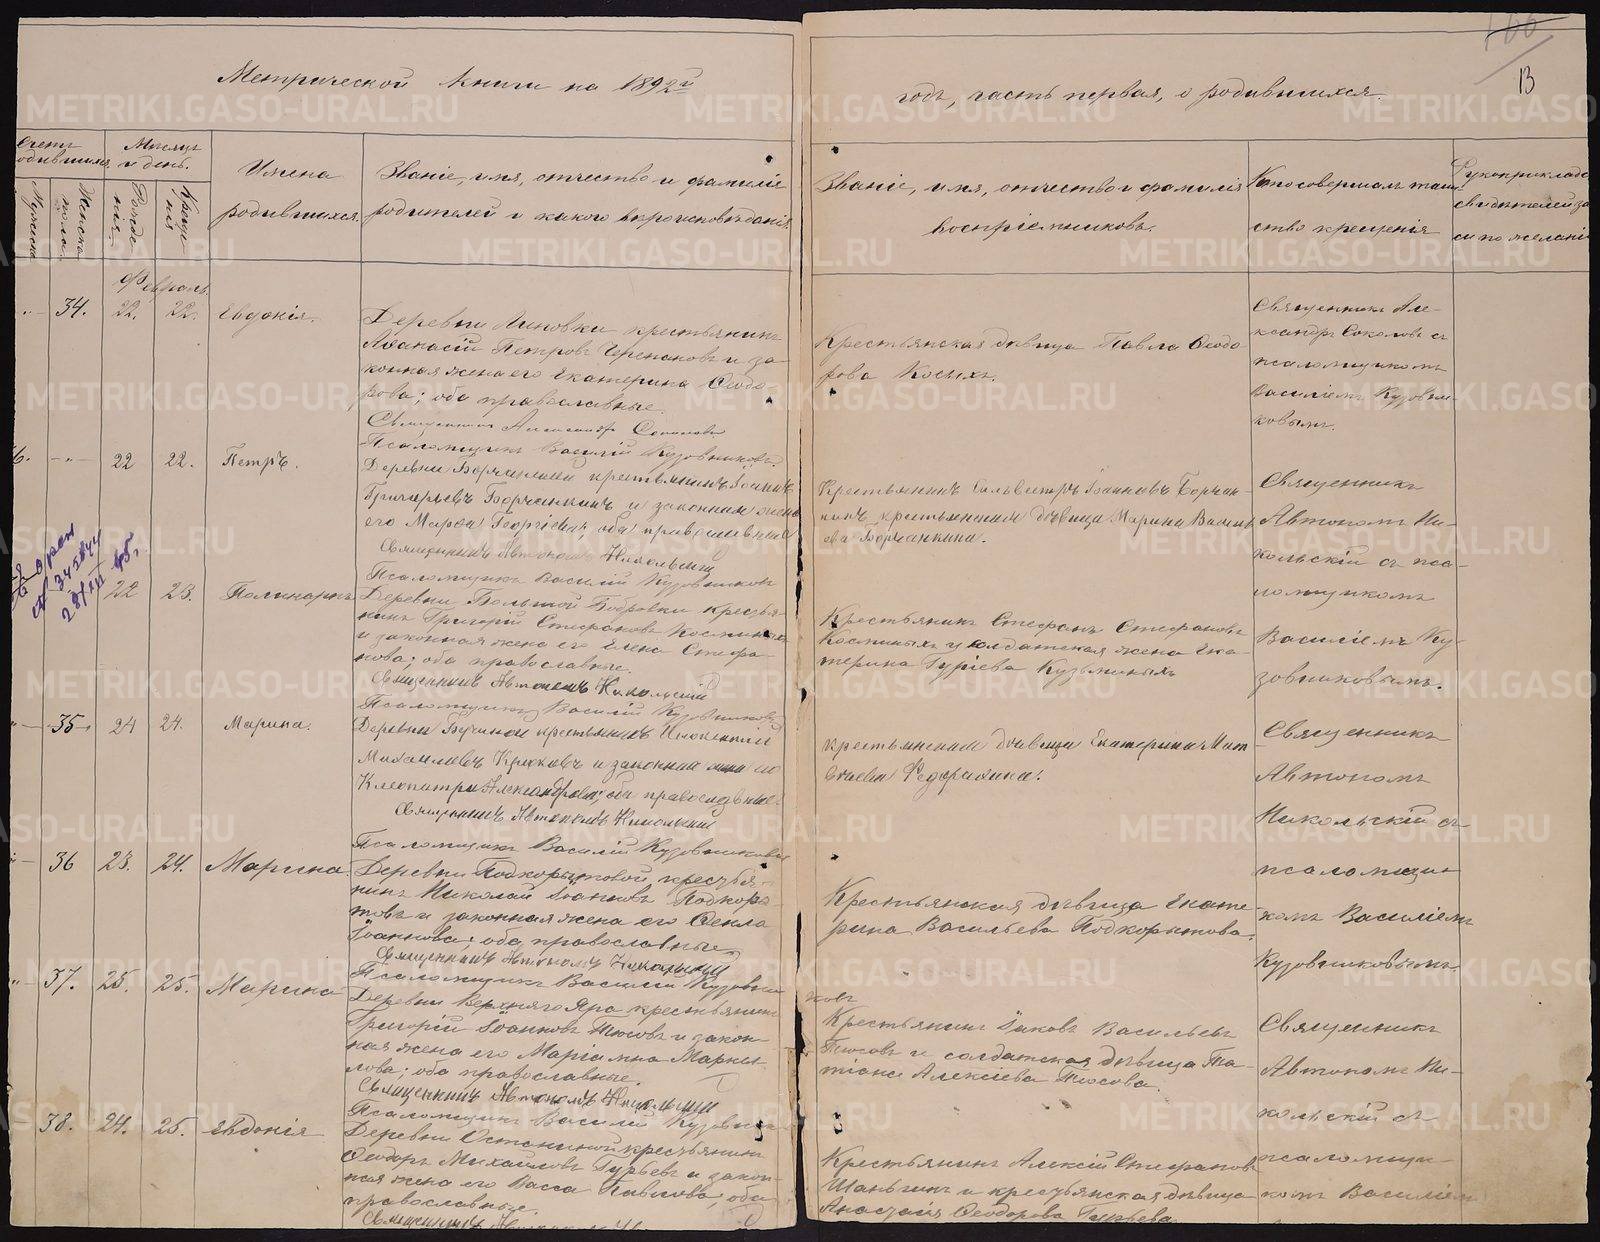 Метрической книги на 1892й
годъ, часть первая, о родившихся.
13
Счетъ родившихся.
Мужеска
Женска пола.
Мѣсяцъ и день.
Рожденiя.
Крещенiя
Имена
родившихся.
Званiе, имя, отчество и фамилiя
родителей и какого вѣроисповѣданiя.
Званiе, имя, отчество и фамилiя
воспрiемниковъ.
Кто совершалъ таин
ство крещенiя
Рукоприкладс
свидѣтелей за
си по желанi
Февраль.
34.
22.
22.
Евдокiя.
Деревни крестьянинъ
Аѳанасiй Петровъ Черепановъ и за-
конная жена его Екатерина Ѳеодо
рова; оба православные.
Священникъ Александръ Соколовъ
Псаломщикъ Василiй Кузовниковъ.
Крестьянская дѣвица Павла Ѳеодо
рова Косыхъ.
Священникъ Але-
ксандръ Соколовъ съ
псаломщикомъ
Василiемъ Кузовни-
ковымъ.
6.
22
22.
Петръ.
Деревни крестьянинъ Iоаннъ
Григорьевъ Борчанкинъ и законная жена
его Марѳа Георгiева; оба православные
Священникъ Автономъ Никольскiй
Псаломщикъ Василiй Кузовниковъ
Крестьянинъ Сильвестръ Iоанновъ Борчан-
кинъ, крестьянская дѣвица Марина Василь
ева Борчанкина.
Священникъ
Автономъ Ни-
кольскiй съ пса-
ломщикомъ
Василiемъ Ку-
зовниковымъ.
22
23.
Поликарпъ
Деревни Большой Бобровки крестья-
нинъ Григорiй Стефановъ Косминыхъ
и законная жена его Елена Стефа-
нова; оба православные.
Священникъ Автономъ Никольскiй
Псаломщикъ Василiй Кузовниковъ
Крестьянинъ Стефанъ Стефановъ
Косминыхъ и солдатская жена Ека-
терина Гурiева Кузьминыхъ
35
24
24.
Марина.
Деревни крестьянинъ Иннокентiй
Михаиловъ Крюковъ и законная жена его
Клеопатра Александрова; оба православные
Священникъ Автономъ Никольскiй
Псаломщикъ Василiй Кузовниковъ
Крестьянская дѣвица Екатерина Мат
вѣева Федоряхина.
Священникъ
Автономъ
Никольскiй съ
псаломщи-
комъ Василiемъ
Кузовниковымъ.
36
23.
24.
Марина.
Деревни Подкорытовой, крестья-
нинъ Николай Iоанновъ Подкоры-
товъ и законная жена его Ѳекла
Iоаннова; оба православные
Священникъ Автономъ Никольскiй
Псаломщикъ Василiй Кузовни
ковъ
Крестьянская дѣвица Екате-
рина Васильева Подкорытова.
37.
25.
25.
Марина
Деревни Верхняго Яра крестьянинъ
Григорiй Iоанновъ Тюсовъ и закон-
ная жена его Марiамна Маркел-
лова; оба православные.
Священникъ Автономъ Никольскiй
Псаломщикъ Василiй Кузовник
Крестьянинъ Iаковъ Васильевъ
Тюсовъ и солдатская дѣвица Та-
тiана Алексiева Тюсова.
Священникъ
Автономъ Ни-
кольскiй съ
псаломщи-
комъ Василiем
38.
24.
25.
Евдокiя
Деревни Останиной крестьянинъ
Ѳеодоръ Михаиловъ Гурьевъ и закон-
ная жена его Васса Павлова; оба
православные.
Священникъ
Крестьянинъ Алексiй Стефановъ
Шаньгинъ и крестьянская дѣвица
Анастасiя Ѳеодорова Гурьева.
METRIKI.GASO-URAL.RU